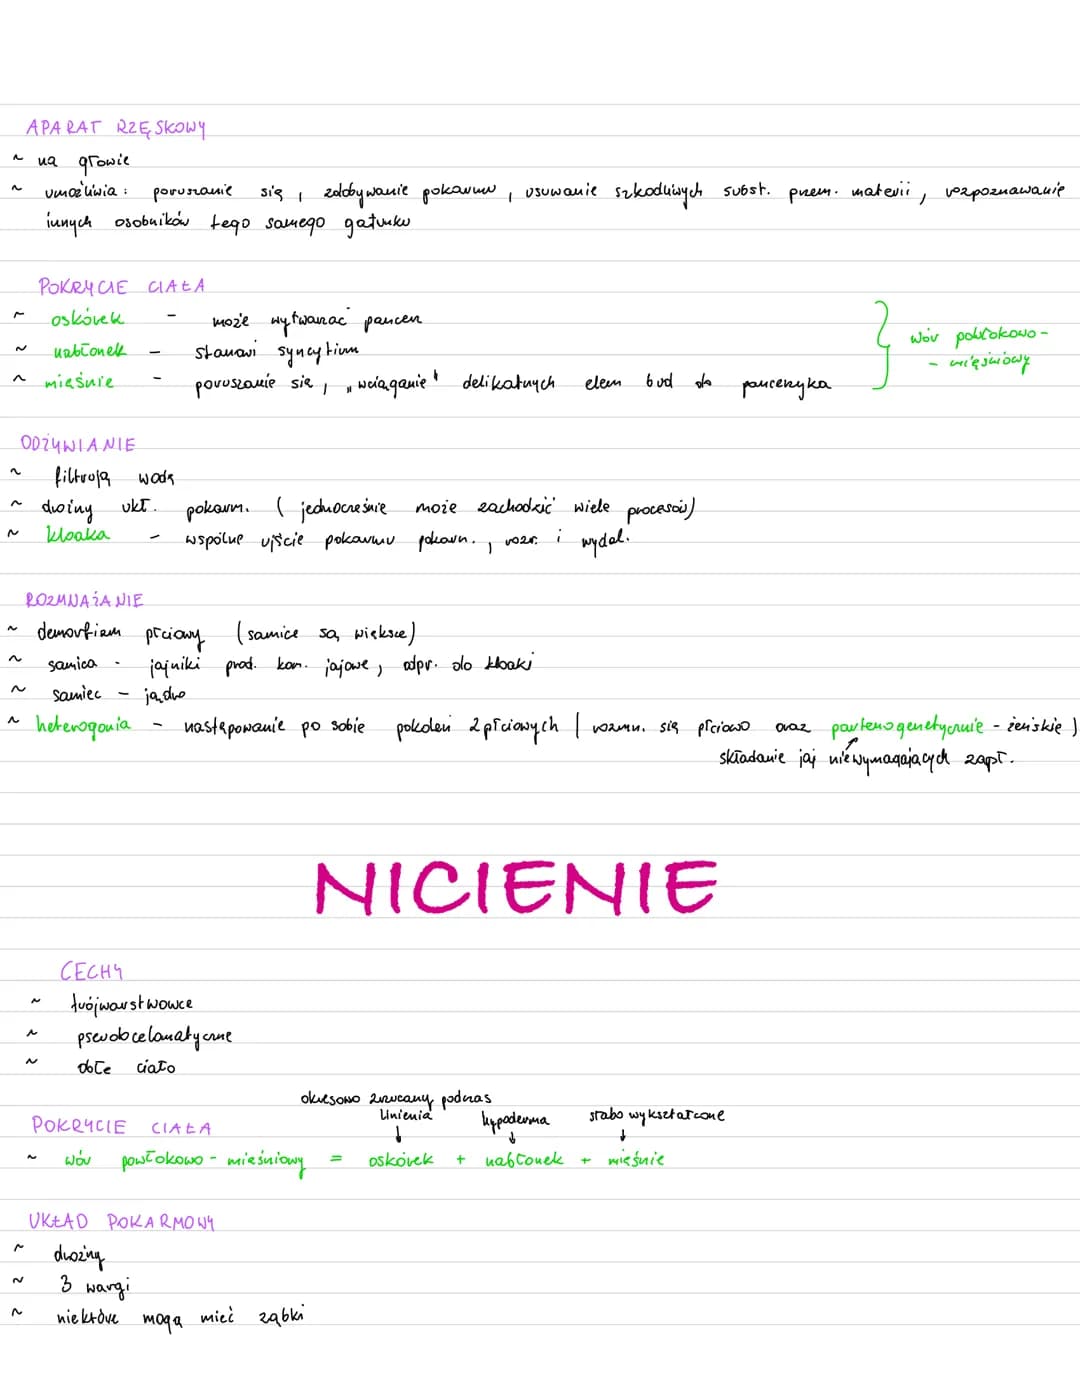 APARAT RZĘSKOWY
~ na głowie
~ umożliwia : poruszanie się , zdobywanie pokarmu , usuwanie szkodliwych subst. przem. materii , rozpoznawanie
innych osobników tego samego gatunku
POKRYCIE CIAŁA
~ oskórek - może wytwarzać pancerz
~ nabłonek - stanowi syncytium
~ mięśnie - poruszanie się , "wciąganie" delikatnych elem bud do pancerzyka
wór powłokowo-
- mięśniowy
ODŻYWIANIE
~ filtrują wodę
~ drożny ukł. pokarm. ( jednocześnie może zachodzić wiele procesów)
~ kloaka - wspólne ujście pokarmu pokarm. , rozr. i wydal.
ROZMNAŻANIE
~ demorfizm płciowy (samice są większe)
~ samica - jajniki prod. kom. jajowe , odpr. do kloaki
~ samiec - jądro
~ heterogonia - następowanie po sobie pokoleń 2 płciowych ( rozmn. się płciowo oraz partenogenetycznie - żeńskie )
składanie jaj niewymagających zapł.
NICIENIE
CECHY
~ trójwarstwowce
~ pseudocelomatyczne
~ obłe ciało
okresowo zrzucany podczas
linienia hypoderma słabo wykształcone
POKRYCIE CIAŁA
~ wór powłokowo - mięśniowy = oskórek + nabłonek + mięśnie
UKŁAD POKARMOWY
~ drożny
~ 3 wargi
~ niektóre mogą mieć ząbki